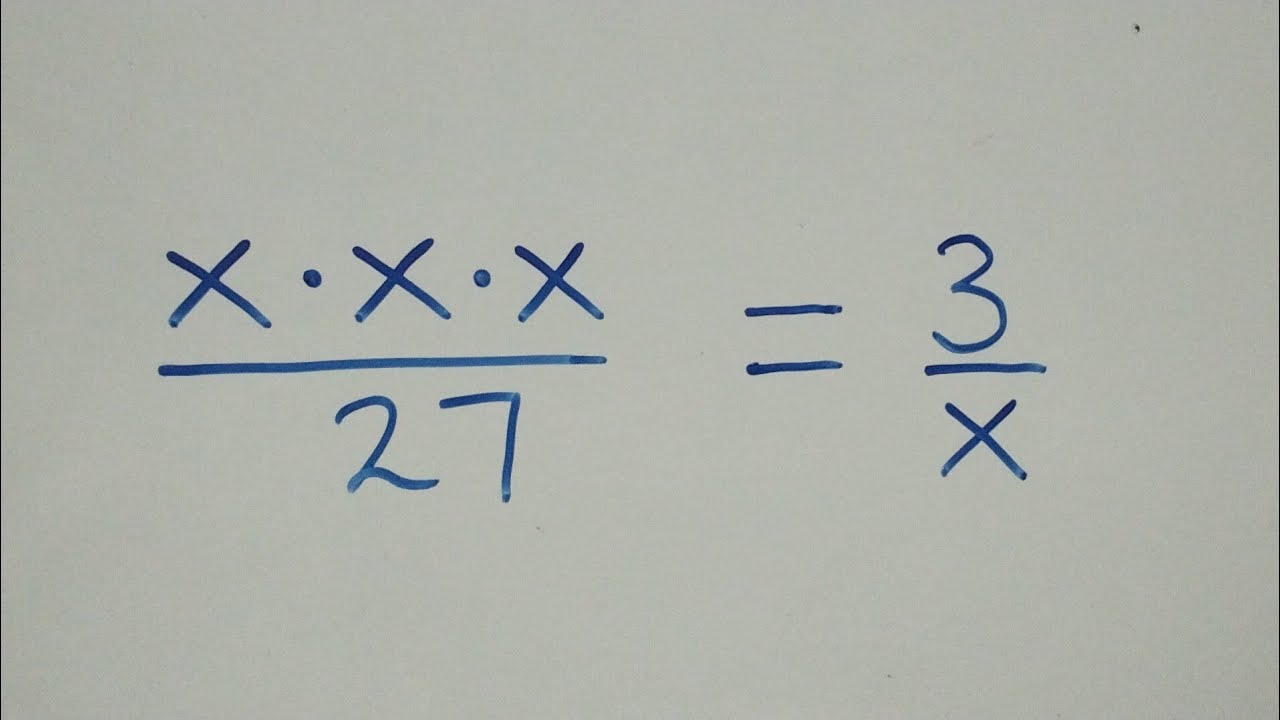 x · x · x / 27 = 3 / x